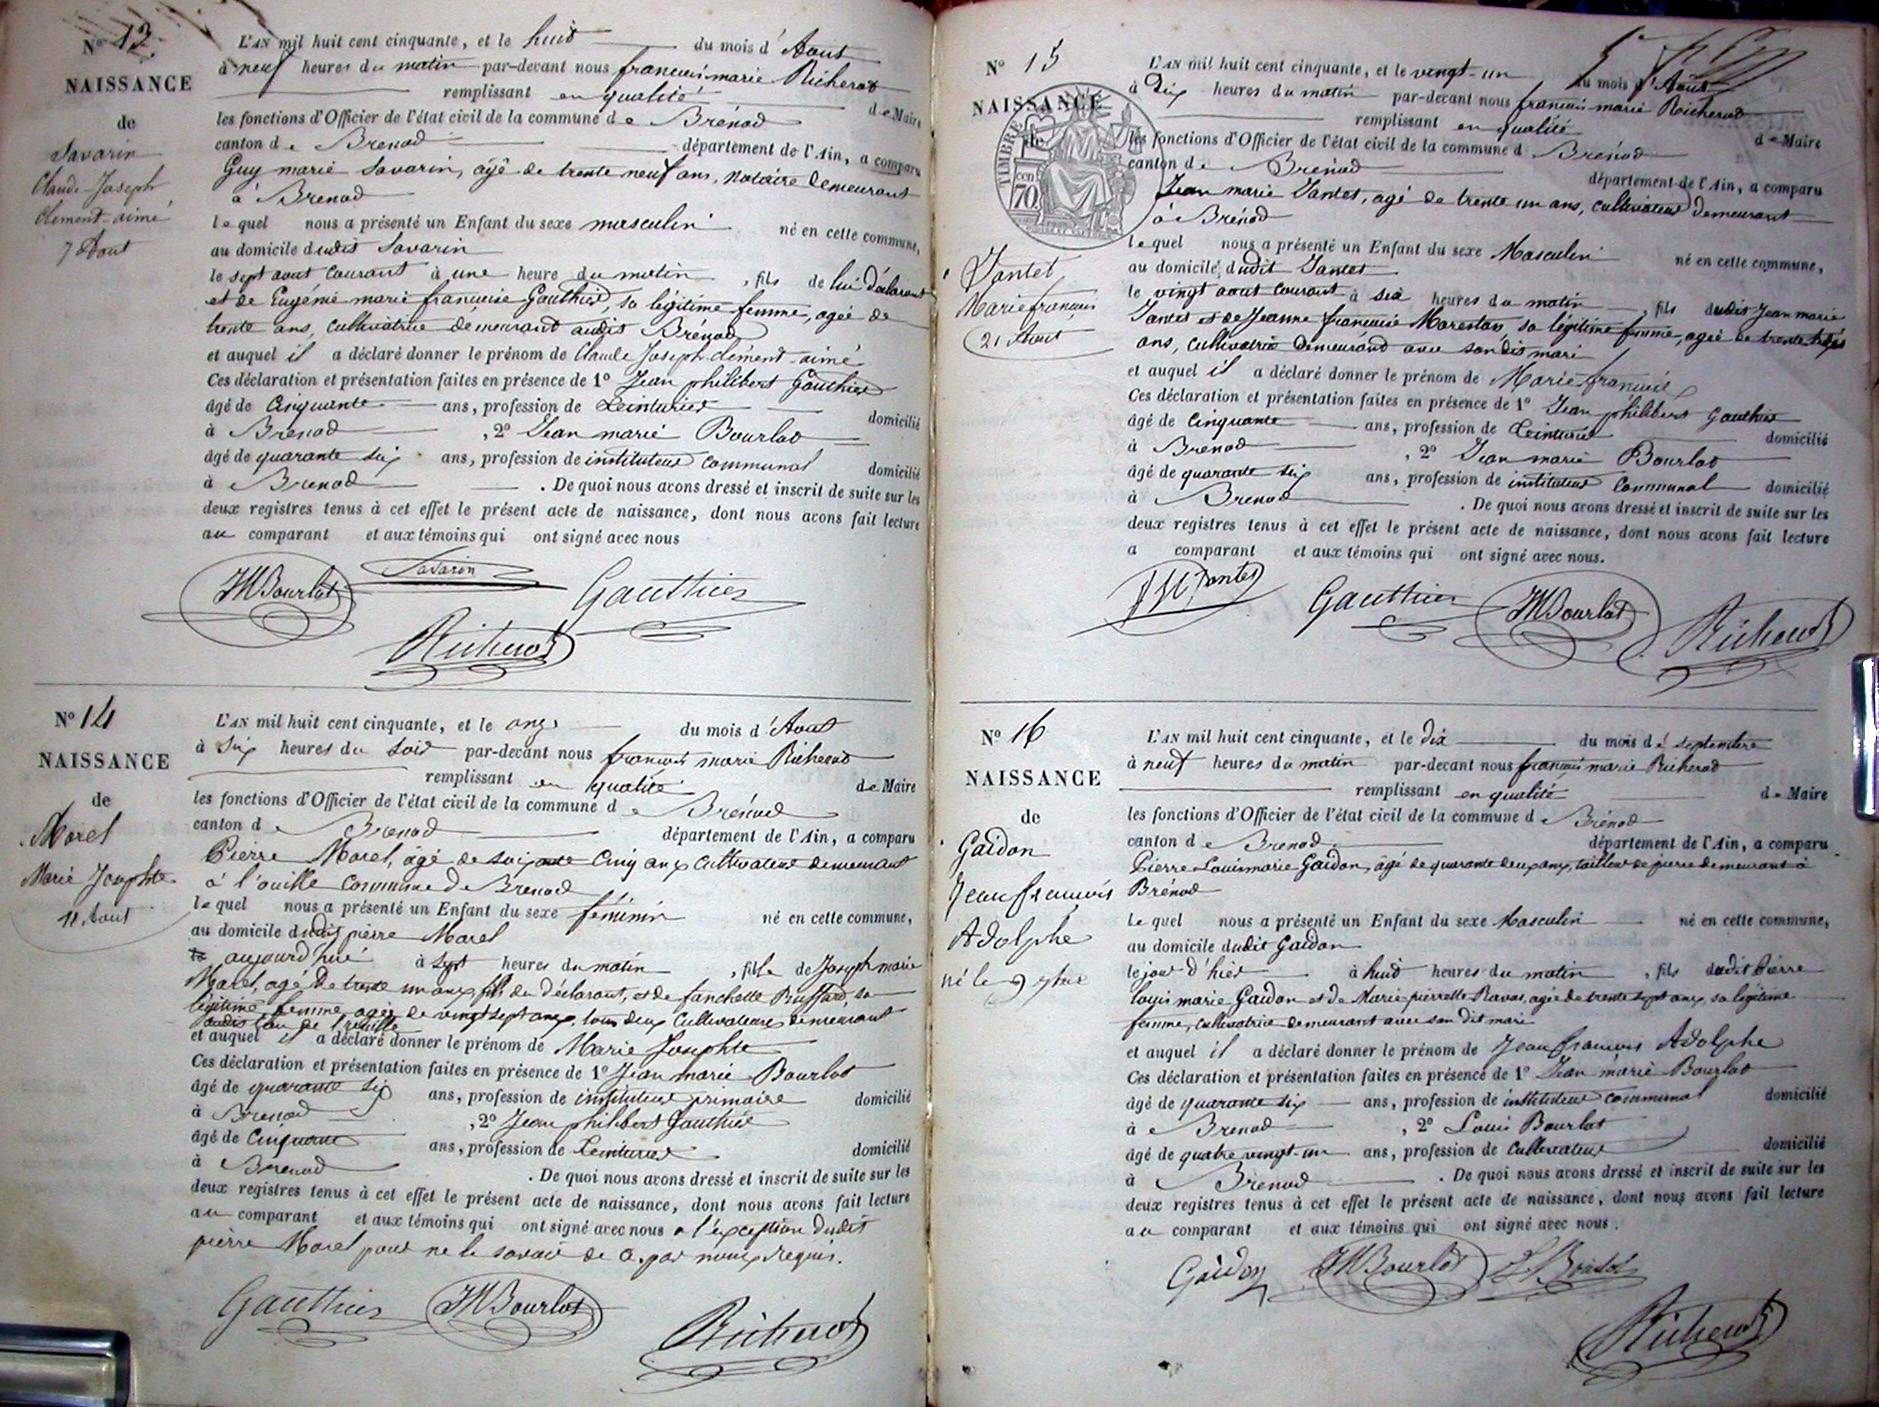 Nº 13
NAISSANCE
de
Savarin
Claude Joseph
Clement aimé
7 Aout
L'AN mil huit cent cinquante, et le huit du mois d'Aout
à neuf heures du matin par-devant nous francois marie Richerot
remplissant en qualité de Maire
les fonctions d'Officier de l'état civil de la commune de Brénod
canton de Brenod département de l'Ain, a comparu
Guy marie Savarin, âgé de trente neuf ans, notaire demeurant
à Brenod
lequel nous a présenté un Enfant du sexe masculin né en cette commune,
au domicile dudit Savarin
le sept aout courant à une heure du matin, fils de lui déclarant
et de Eugénie marie francoise Gauthier, sa légitime femme, agée de
trente ans, cultivatrice demeurant audit Brénod
et auquel il a déclaré donner le prénom de Claude Joseph clément aimé
Ces déclaration et présentation faites en présence de 1º Jean philibert Gauthier
âgé de Cinquante ans, profession de teinturier domicilié
à Brenod, 2º Jean marie Bourlot
âgé de quarante six ans, profession de instituteur communal domicilié
à Brenod. De quoi nous avons dressé et inscrit de suite sur les
deux registres tenus à cet effet le présent acte de naissance, dont nous avons fait lecture
au comparant et aux témoins qui ont signé avec nous
JM Bourlot Savarin Gauthier
Richerot
Nº 14
NAISSANCE
de
Morel
Marie Josephte
11 Aout
L'AN mil huit cent cinquante, et le onze du mois d'Aout
à six heures du soir par-devant nous francois marie Richerot
remplissant en qualité de Maire
les fonctions d'Officier de l'état civil de la commune de Brénod
canton de Brenod département de l'Ain, a comparu
Pierre Morel, âgé de soixante cinq ans cultivateur demeurant
à l'ouille commune de Brenod
lequel nous a présenté un Enfant du sexe féminin né en cette commune,
au domicile dudit pierre Morel
aujourd'hui à sept heures du matin, fille de Joseph marie
Morel, agé de trente un ans, fils du déclarant, et de fanchette Buffard, sa
légitime femme agée de vingt sept ans, tous deux cultivateurs demeurant
et auquel il a déclaré donner le prénom de Marie Josephte
Ces déclaration et présentation faites en présence de 1º Jean marie Bourlot
âgé de quarante six ans, profession de instituteur primaire domicilié
à Brenod, 2º Jean philibert Gauthier
âgé de Cinquante ans, profession de teinturier domicilié
à Brenod. De quoi nous avons dressé et inscrit de suite sur les
deux registres tenus à cet effet le présent acte de naissance, dont nous avons fait lecture
au comparant et aux témoins qui ont signé avec nous a l'exception dudit
pierre Morel pour ne le savoir de ce par nous requis.
Gauthier JM Bourlot
Richerot
Nº 15
NAISSANCE
de
TIMBRE
70 cen
Jantet
Marie francois
21 Aout
L'AN mil huit cent cinquante, et le vingt-un du mois d'Aout
à Dix heures du matin par-devant nous francois marie Richerot
remplissant en qualité de Maire
les fonctions d'Officier de l'état civil de la commune d Brénod
canton de Brénod département de l'Ain, a comparu
Jean marie Jantet, agé de trente un ans, cultivateur demeurant
à Brénod
lequel nous a présenté un Enfant du sexe Masculin né en cette commune,
au domicile dudit Jantet
le vingt aout courant à six heures du matin, fils dudit Jean marie
Jantet et de Jeanne francoise Marestan sa légitime femme, agée de trente
ans, cultivatrice demeurand avec sondit mari
et auquel il a déclaré donner le prénom de Marie francois
Ces déclaration et présentation faites en présence de 1º Jean philibert Gauthier
âgé de Cinquante ans, profession de teinturier domicilié
à Brenod, 2º Jean marie Bourlot
âgé de quarante six ans, profession de instituteur communal domicilié
à Brenod. De quoi nous avons dressé et inscrit de suite sur les
deux registres tenus à cet effet le présent acte de naissance, dont nous avons fait lecture
a comparant et aux témoins qui ont signé avec nous.
JM Jantet Gauthier JM Bourlot Richerot
Nº 16
NAISSANCE
de
Gaidon
Jean francois
Adolphe
né le 9 7bre
L'AN mil huit cent cinquante, et le dix du mois de septembre
à neuf heures du matin par-devant nous francois marie Richerot
remplissant en qualité de Maire
les fonctions d'Officier de l'état civil de la commune de Brénod
canton de Brenod département de l'Ain, a comparu
Pierre Louis marie Gaidon, âgé de quarante deux ans, tailleur de pierre demeurant à
Brénod
Lequel nous a présenté un Enfant du sexe Masculin né en cette commune,
au domicile dudit Gaidon
le jour d'hier à huit heures du matin, fils dudit Pierre
louis marie Gaidon et de Marie pierrette Ravas, agée de trente sept ans, sa légitime
femme, cultivatrice demeurant avec son dit mari
et auquel il a déclaré donner le prénom de Jean francois Adolphe
Ces déclaration et présentation faites en présence de 1º Jean marie Bourlot
âgé de quarante six ans, profession de instituteur communal domicilié
à Brenod, 2º Louis Bourlot
âgé de quatre vingt-un ans, profession de cultivateur domicilié
à Brenod. De quoi nous avons dressé et inscrit de suite sur les
deux registres tenus à cet effet le présent acte de naissance, dont nous avons fait lecture
au comparant et aux témoins qui ont signé avec nous.
Gaidon JM Bourlot
Richerot